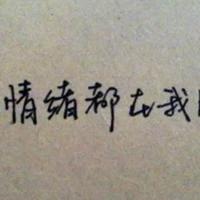 情绪都在我